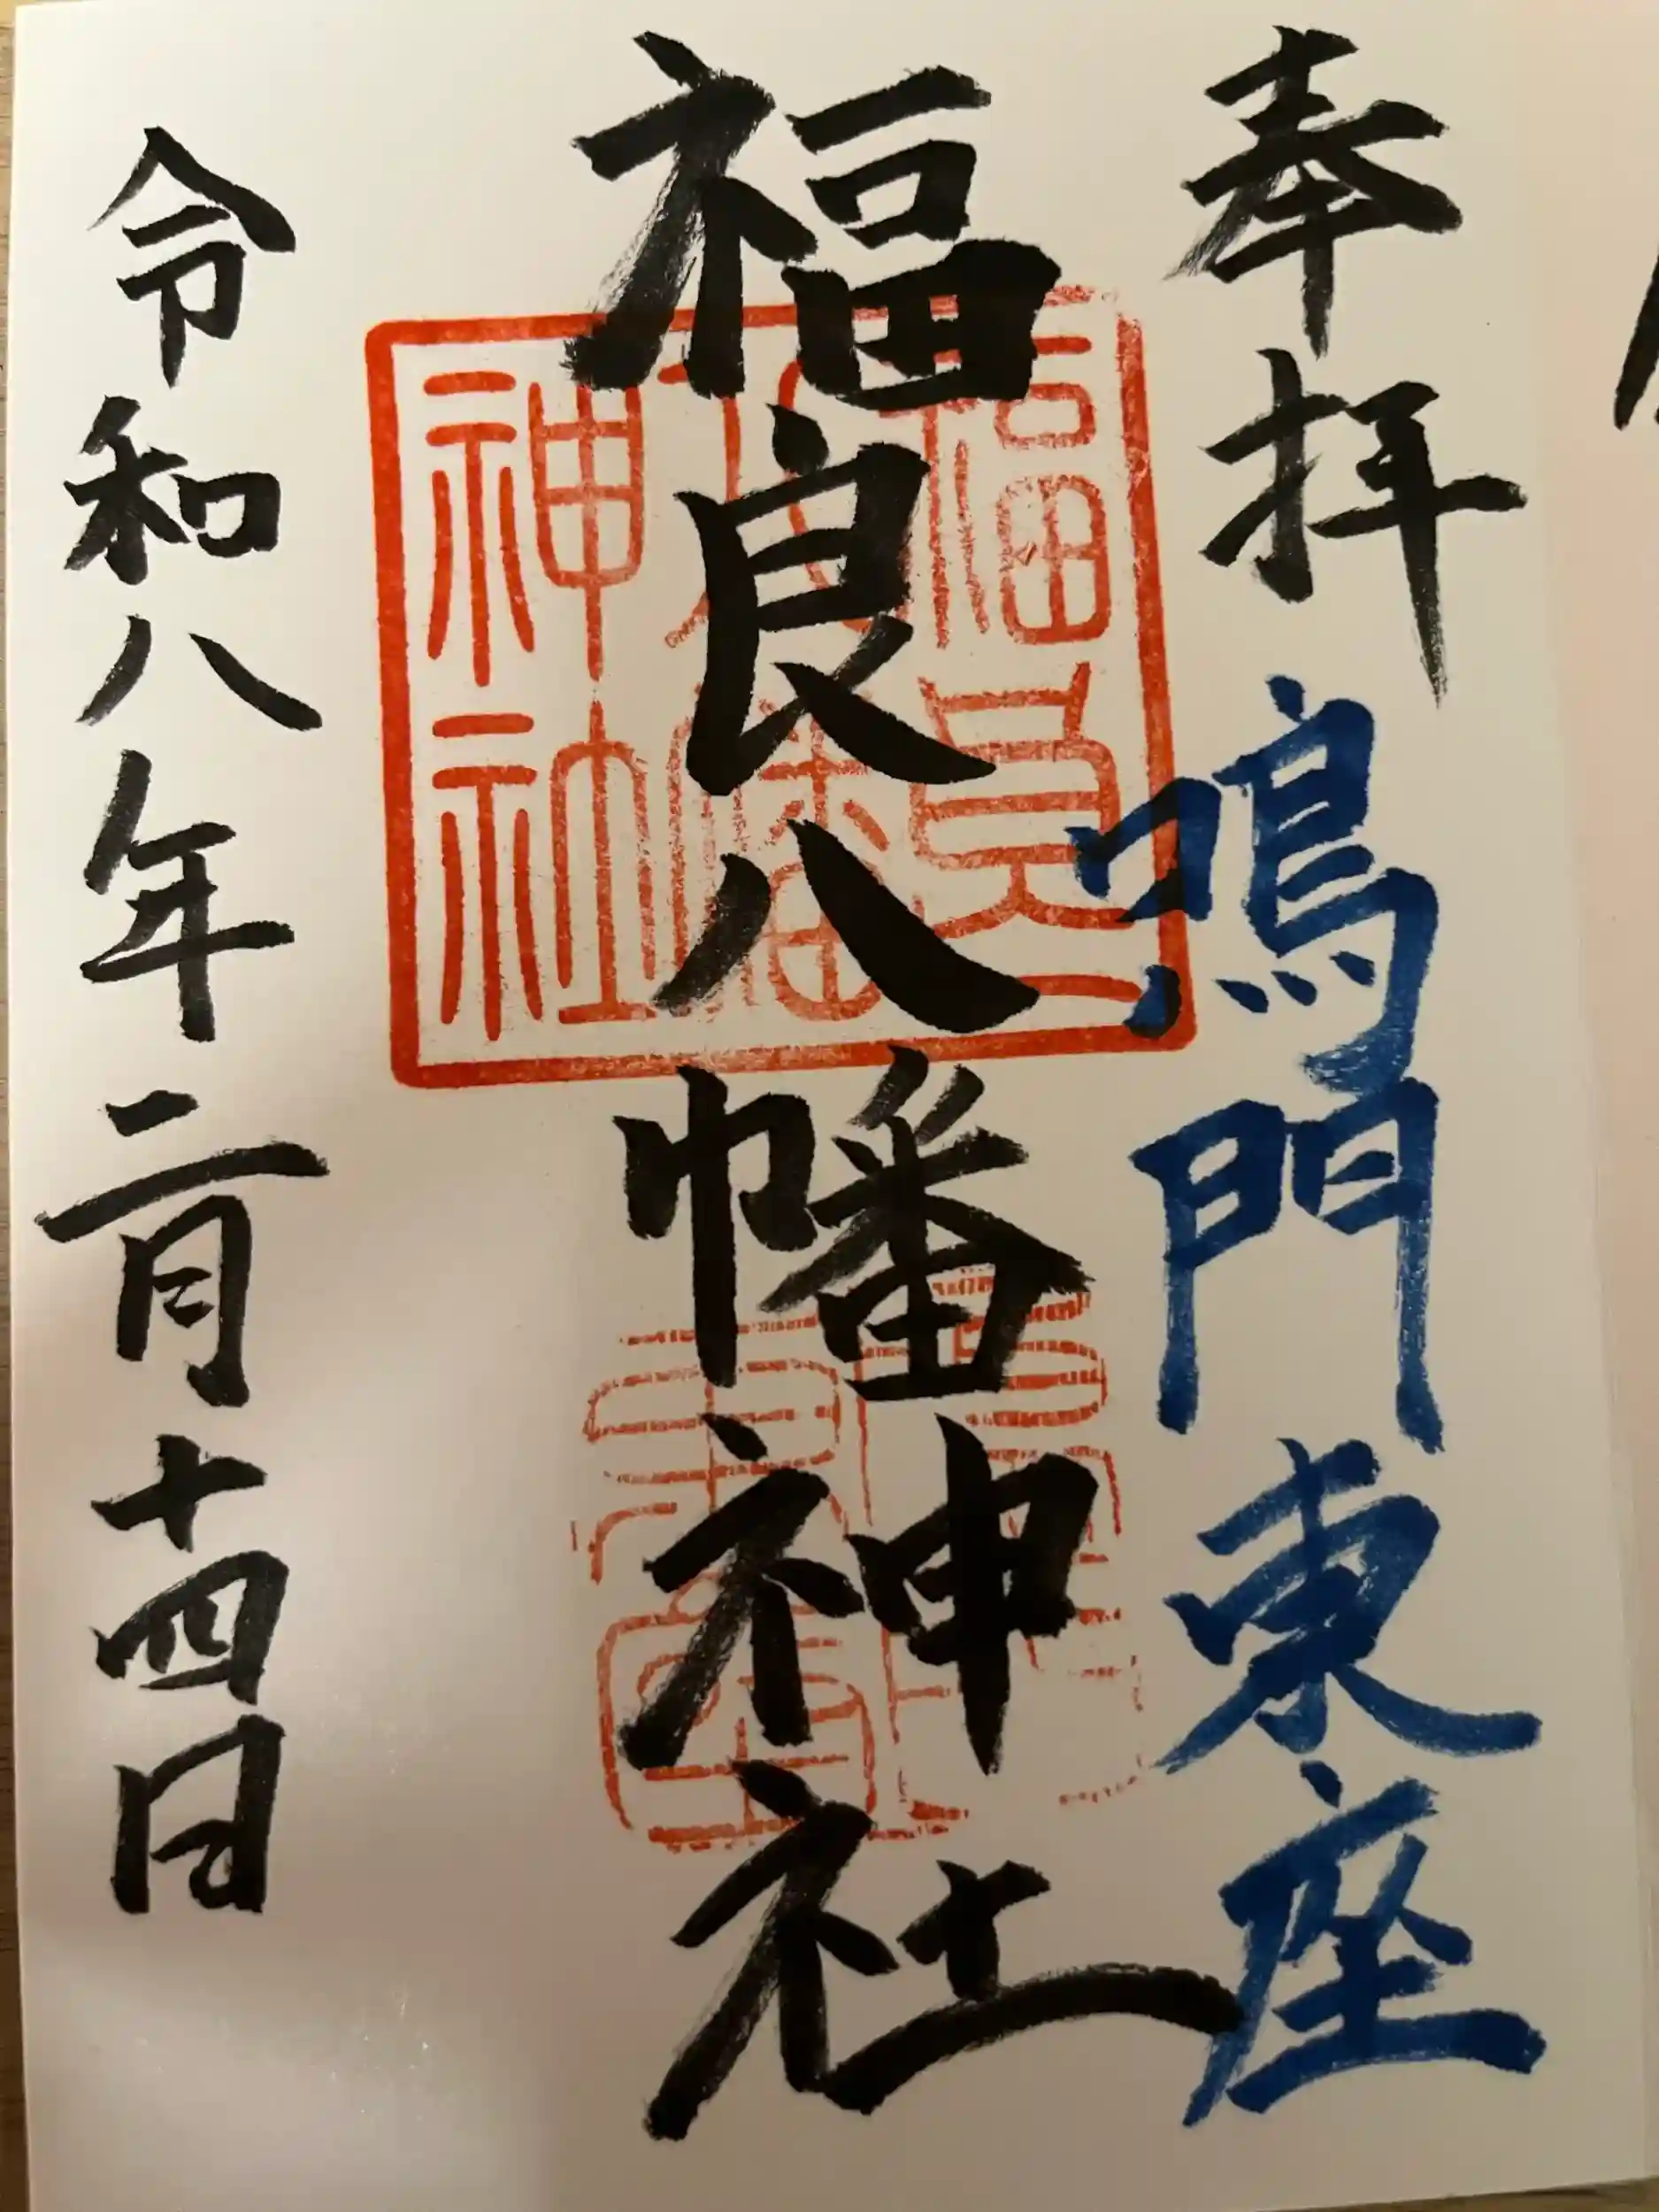 奉拝
鳴門東座
福良八幡神社
福良
八幡
神社
令和八年二月十四日